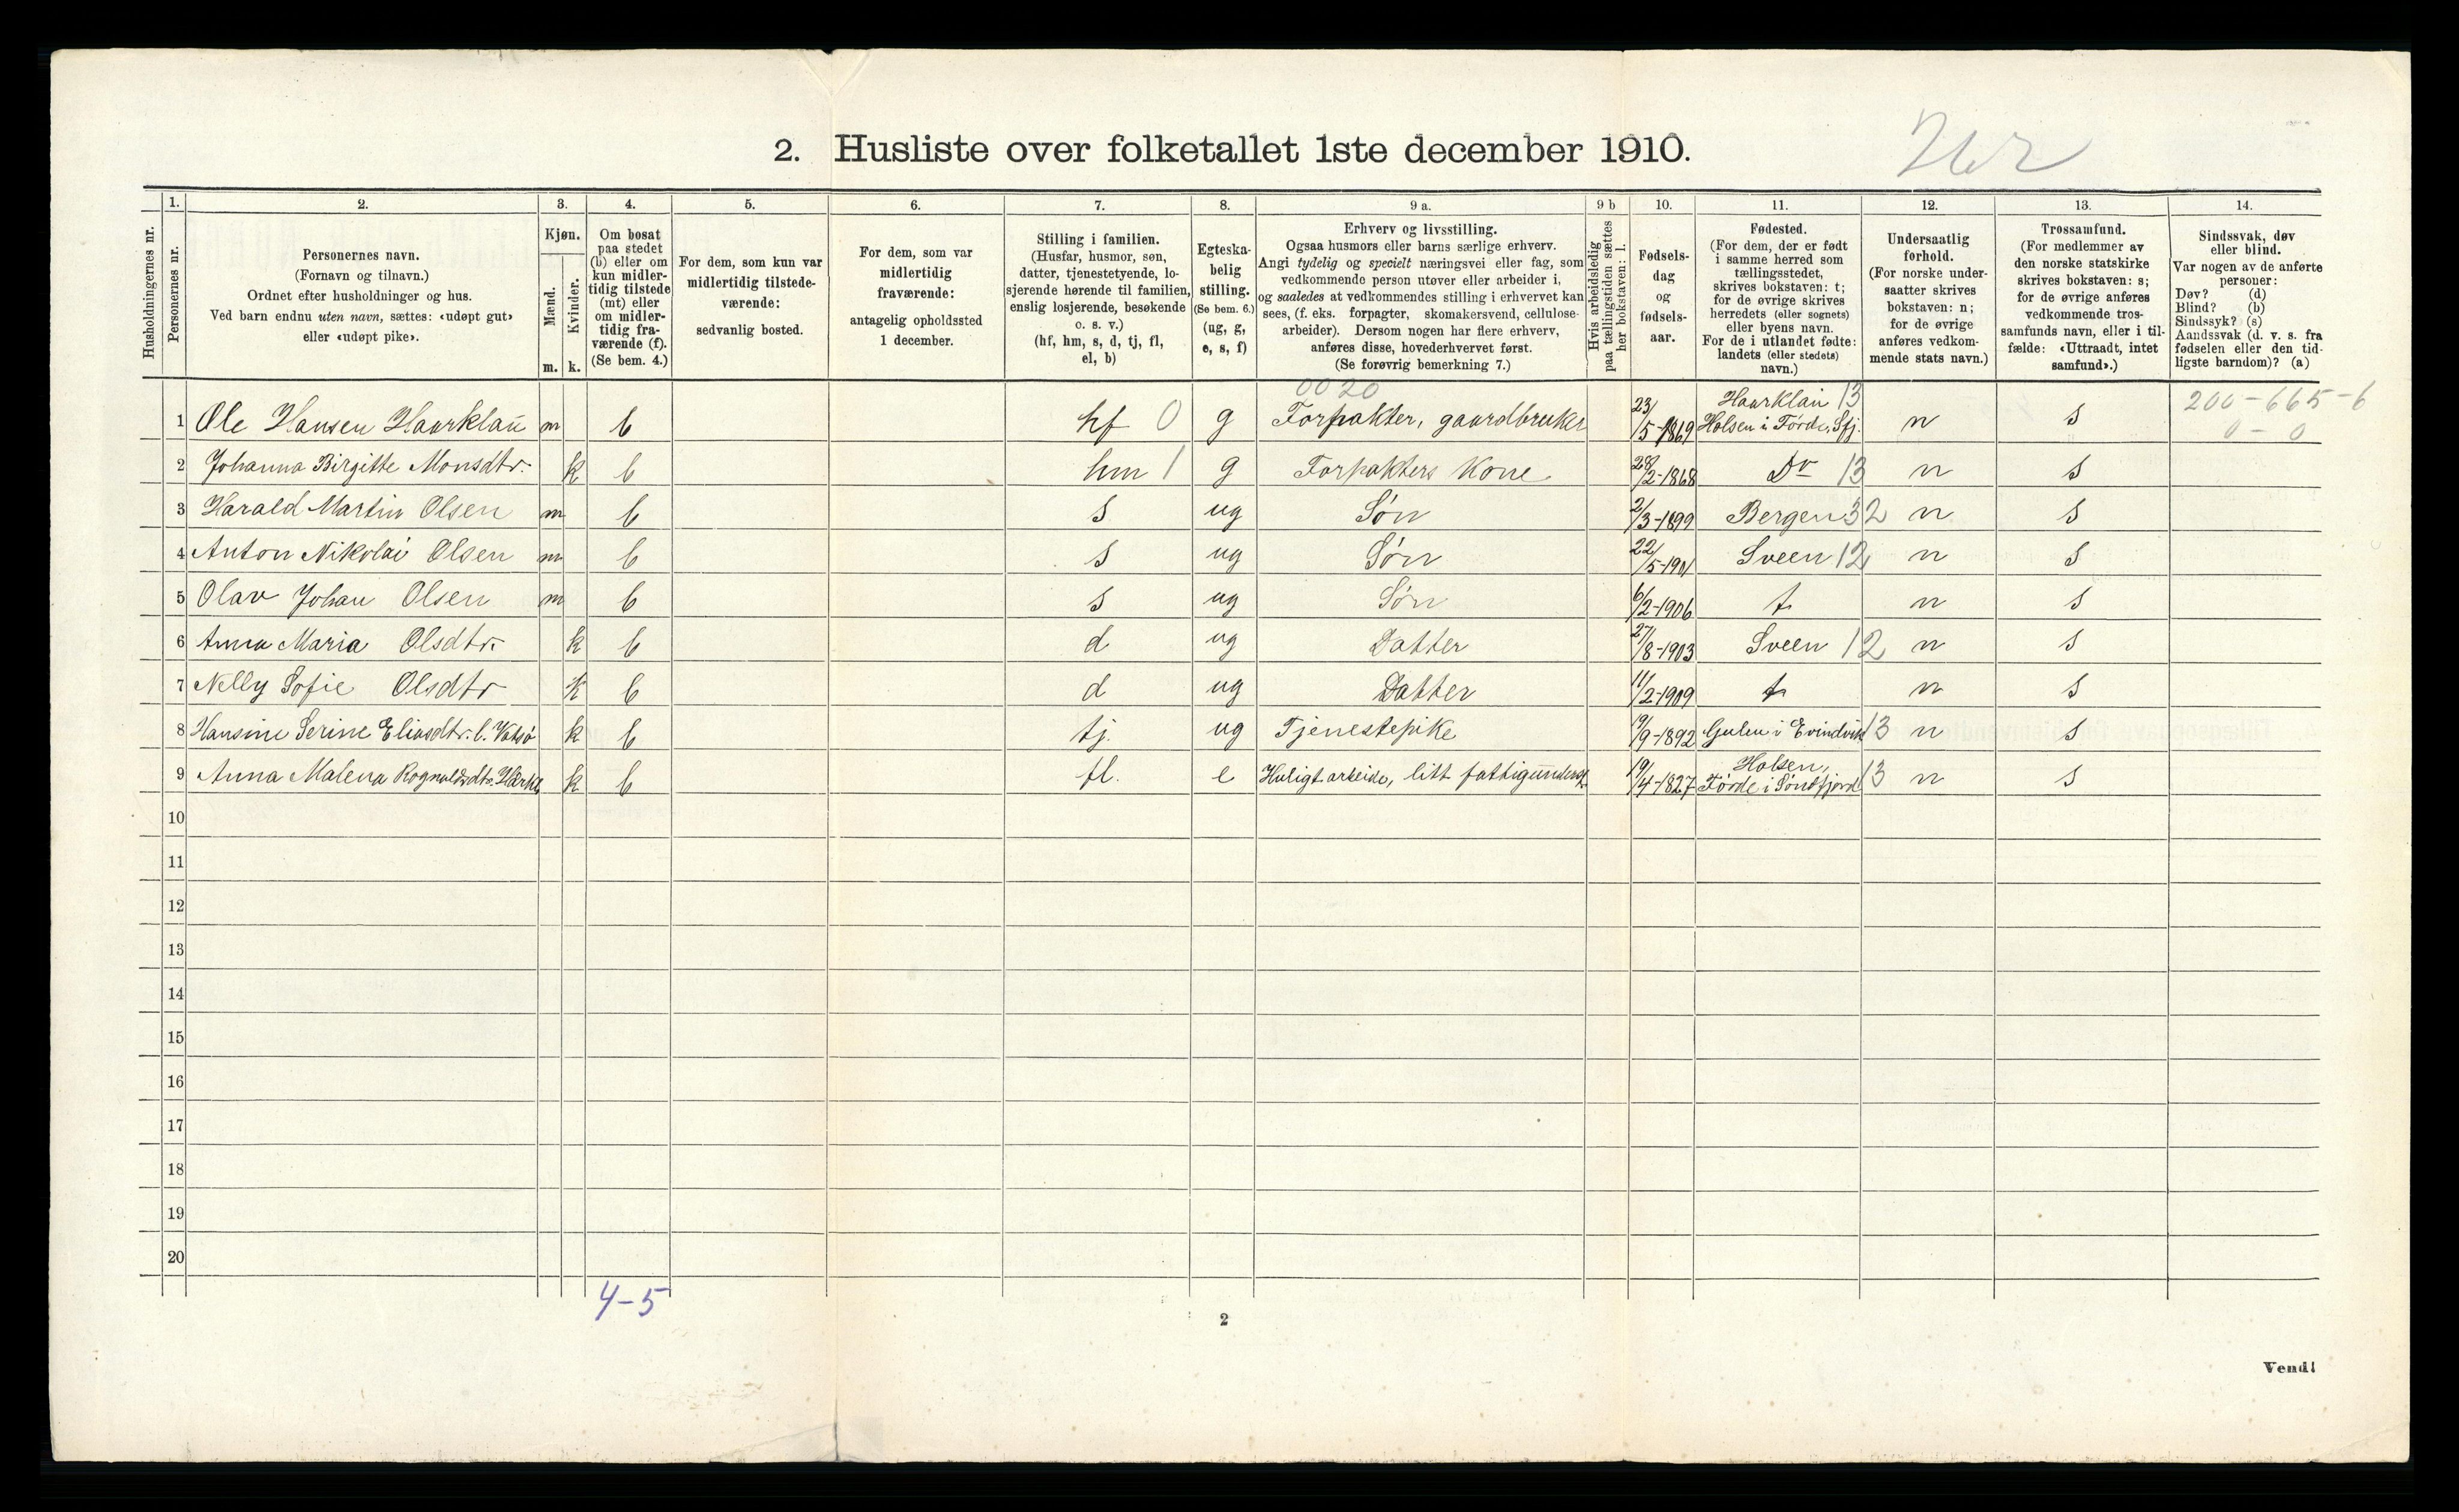 2. Husliste over folketallet 1ste december 1910.
Husholdningernes nr.
1.
Personernes nr.
2.
Personernes navn.
(Fornavn og tilnavn.)
Ordnet efter husholdninger og hus.
Ved barn endnu uten navn, sættes: «udøpt gut»
eller «udøpt pike».
3.
Kjøn.
Mænd.
Kvinder.
m. k.
4.
Om bosat
paa stedet
(b) eller om
kun midler-
tidig tilstede
(mt) eller
om midler-
tidig fra-
værende (f).
(Se bem. 4.)
5.
For dem, som kun var
midlertidig tilstede-
værende:
sedvanlig bosted.
6.
For dem, som var
midlertidig
fraværende:
antagelig opholdssted
1 december.
7.
Stilling i familien.
(Husfar, husmor, søn,
datter, tjenestetyende, lo-
sjerende hørende til familien,
enslig losjerende, besøkende
o. s. v.)
(hf, hm, s, d, tj, fl,
el, b)
8.
Egteska-
belig
stilling.
(Se bem. 6.)
(ug, g,
e, s, f)
9 a.
Erhverv og livsstilling.
Ogsaa husmors eller barns særlige erhverv.
Angi tydelig og specielt næringsvei eller fag, som
vedkommende person utøver eller arbeider i,
og saaledes at vedkommendes stilling i erhvervet kan
sees, (f. eks. forpagter, skomakersvend, cellulose-
arbeider). Dersom nogen har flere erhverv,
anføres disse, hovederhvervet først.
(Se forøvrig bemerkning 7.)
9 b
Hvis arbeidsledig
paa tællingstiden sættes
her bokstaven: l.
10.
Fødsels-
dag
og
fødsels-
aar.
11.
Fødested.
(For dem, der er født
i samme herred som
tællingsstedet,
skrives bokstaven: t;
for de øvrige skrives
herredets (eller sognets)
eller byens navn.
For de i utlandet fødte:
landets (eller stedets)
navn.)
12.
Undersaatlig
forhold.
(For norske under-
saatter skrives
bokstaven: n;
for de øvrige
anføres vedkom-
mende stats navn.)
13.
Trossamfund.
(For medlemmer av
den norske statskirke
skrives bokstaven: s;
for de øvrige anføres
vedkommende tros-
samfunds navn, eller i til-
fælde: «Uttraadt, intet
samfund».)
14.
Sindssvak, døv
eller blind.
Var nogen av de anførte
personer:
Døv? (d)
Blind? (b)
Sindssyk? (s)
Aandssvak (d. v. s. fra
fødselen eller den tid-
ligste barndom)? (a)
0020 Haarklau 13 200-665-6
1 Ole Hansen Haarklau m b hf 0 g Forpakter, gaardbruker 23/5-1869 Holsen i Førde, Sfj. n s 0-0
2 Johanna Birgitte Monsdtr. k b hm 1 g Forpakters Kone 28/2-1868 Do 13 n s
3 Harald Martin Olsen m b s ug Søn 2/3-1899 Bergen 32 n s
4 Anton Nikolai Olsen m b s ug Søn 22/5-1901 Sveen 12 n s
5 Olav Johan Olsen m b s ug Søn 6/2-1906 t n s
6 Anna Maria Olsdtr. k b d ug Datter 27/8-1903 Sveen 12 n s
7 Nelly Sofie Olsdtr k b d ug Datter 11/2-1909 t n s
8 Hansine Serine Eliasdtr. k b tj. ug Tjenestepike 9/9-1892 Gulen i Evindvik 13 n s
9 Anna Malena Rognaldsdtr. k b fl. e Huligt arbeide, litt fattigunderst. 19/4-1827 Holsen, Førde i Søndfjord 13 n s
10
11
12
13
14
15
16
17
18
19
20
4-5
2
Vend!